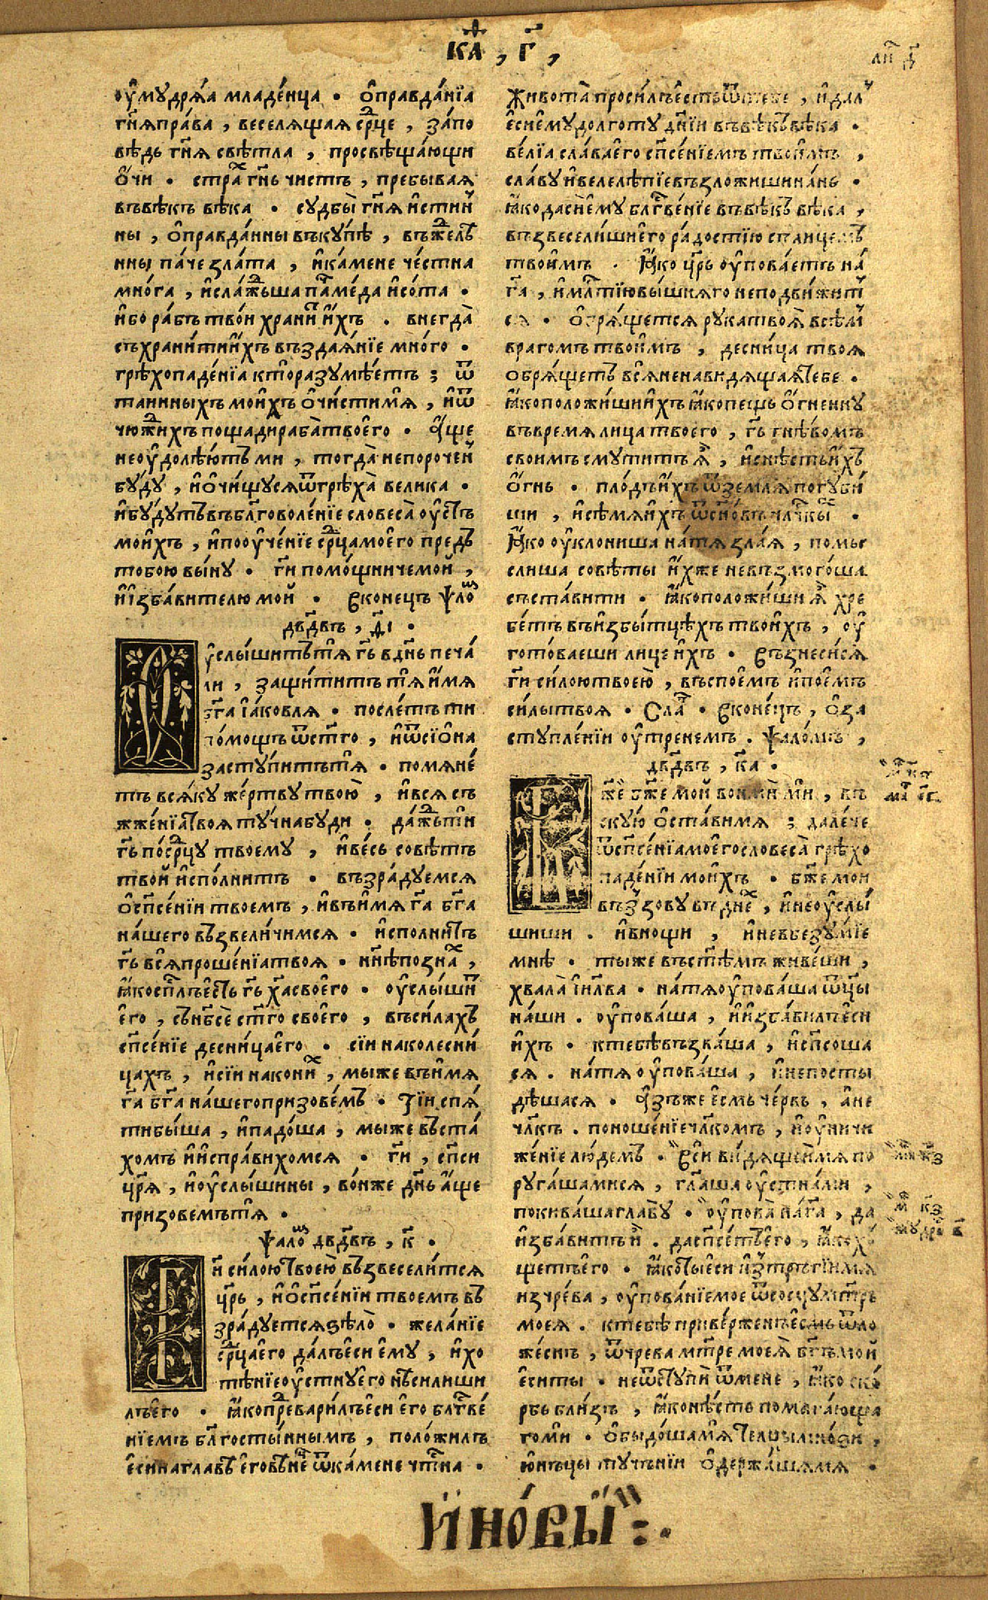 КА҃, Г҃,
оу҆мудрѧ́ѧ младе́нца . ѡ҆правда́нїѧ
гн҃ѧ пра́ва , веселѧ́щаѧ ср҃це , за́по
вѣдь гн҃ѧ свѣ́тла , просвѣща́ющи
о҆́чи . стра́х гн҃ь чистъ , пребываѧ
въвѣ́къ вѣ́ка . судбы̀ гн҃ѧ и҆́стин
ны , ѡ҆правда́нны въку́пѣ , въжде́лѣ
нны па́че зла́та , и҆ ка́мене че́стна
мно́га , и҆сла́ждьша па́че ме́да и҆со́та .
и҆́бо ра́бъ тво́и храни́т и҆̀хъ . внегда̀
съхрани́ти и҆̀хъ въздаѧ́нїе мно́го .
грѣхопаде́нїѧ кто̀ разумѣ́етъ ; ѿ
та́инныхъ мои́хъ ѡ҆чи́сти мѧ , и҆ ѿ
чю́жихъ пощади́ раба̀ твоего̀ . а҆́ще
неоу҆долѣ́ютъ ми , тогда̀ непоро́чен
бу́ду , и҆ ѡ҆чи́щусѧ ѿ грѣха̀ велика .
и҆ бу́дутъ въ бл҃говоле́нїе словеса̀ оу҆́стъ
мои́хъ , и҆ пооуче́нїе ср҃ца моего̀ предъ
тобо́ю вы́ну . гн҃и помо́щниче мой ,
и҆ и҆зба́вителю мой . Вконе́цъ ѱало́м
дв҃двъ , ѳ҃і .
У҆слы́шитъ тѧ̀ гь҃ вдн҃ь печа́
ли , защи́титъ тѧ̀ и҆́мѧ
бг҃а і҆а́ковлѧ . послéтъ ти
по́мощь ѿ ст҃го , и҆ ѿ сїѡ́на
засту́питъ тѧ̀ . помѧне́
тъ всѧ́ку же́ртву твою̀ , и҆ всѧ съ
жже́нїѧ твоѧ̀ ту́чна бу́ди . да́жьти
гь҃ по ср҃цу твоему̀ , и҆ ве́сь совѣ́тъ
тво́й и҆спо́лнитъ . възра́дуемсѧ
ѡ҆ сп҃се́нїи твоемъ , и҆ въ и҆́мѧ гд҃а бг҃а
на́шего възвели́чимсѧ . и҆спо́лнитъ
гь҃ всѧ̀ проше́нїѧ твоѧ̀ . нн҃ѣ позна́х ,
ꙗ҆ко сп҃слъ е҆́сть гь҃ ха҃ своего̀ . оу҆слы́шит
е҆го̀ , съ нб҃сѐ ст҃го своего̀ , въ си́лахъ
сп҃се́нїе десни́ца е҆го̀ . сїи на колесни́
цахъ , и҆ сїи на ко́них , мы́ же въ и҆́мѧ
гд҃а бг҃а на́шего призове́мъ . Ті́и спѧ́
ти бы́ша , и҆ падо́ша , мы́ же въста́
хомъ и҆ и҆спра́вихомсѧ . гн҃и , сп҃си
цр҃ѧ , и҆ оу҆слы́ши ны , во́ньже дн҃ь а҆́ще
призове́мъ тѧ̀ .
ѱало́м дв҃двъ , к҃ .
Гн҃ си́лою твое́ю възвесели́тсѧ
цр҃ь , и҆ ѡ҆ сп҃се́нїи твое́мъ въ
зра́дуетсѧ ѕѣло̀ . жела́нїе
ср҃ца е҆го̀ да́лъ е҆сѝ е҆му̀ , и҆ хо
тѣ́нїе оу҆стну̀ е҆го̀ нѣ́си лиши
лъ е҆го̀ . ꙗ҆ко предвари́лъ е҆сѝ е҆го̀ бл҃гве́
нїемъ бл҃госты́ннымъ , положи́лъ
е҆сѝ на главѣ̀ е҆го̀ вѣне́ц ѿ ка́мене чт҃на .
живота̀ проси́лъ е҆́сть ѿ тебѐ , и҆ да́л
е҆сѝ е҆му̀ долготу̀ дн҃їи въ вѣ́къ вѣ́ка .
ве́лїѧ сла́ва е҆го̀ сп҃се́нїемъ твои́мъ ,
сла́ву и҆ велелѣ́пїе възложи́ши на́нь .
ꙗ҆ко да́си е҆му̀ бл҃гве́нїе въ вѣ́къ вѣ́ка ,
възвесели́ши е҆го̀ ра́достїю съ лице́мъ
твои́мъ . Ꙗ҆́ко цр҃ь оу҆пова́етъ на́
гд҃а , и҆ мл҃тїю вы́шнѧго неподви́жит
сѧ . Ѡ҆брѧ́щетсѧ рука̀ твоѧ̀ всѣ́м
враго́мъ твои́мъ , десни́ца твоѧ
ѡ҆брѧ́щетъ всѧ ненави́дѧщаѧ тебѐ .
ꙗ҆ко положи́ши и҆̀хъ ꙗ҆ко пе́щь о҆́гненну
въ вре́мѧ лица̀ твоего̀ , гь҃ гнѣ́вомъ
свои́мъ смути́тъ ѧ҆̀ , и҆ снѣ́стъ и҆̀хъ
о҆́гнь . пло́дъ и҆̀хъ ѿ землѧ̀ погуби́
ши , и҆ сѣ́мѧ и҆̀хъ ѿ сн҃о́въ чл҃чкы́х .
Ꙗ҆ко оуклони́ша на тѧ̀ зла́ѧ , помы
слиша совѣ́ты и҆́хже невъзмого́ша
съста́вити . ꙗ҆ко положи́ши ѧ҆̀ хре
бе́тъ въ и҆збы́тцѣхъ твои́хъ , оу҆
гото́ваеши лицѐ и҆̀хъ . Възнеси́сѧ
гн҃и си́лою твое́ю , въспое́мъ и҆ пое́мъ
си́лы твоѧ̀ . Сла́в . Вконе́цъ , ѡ҆ за
ступле́нїи оу҆́тренемъ . ѱало́мъ ,
дв҃двъ , ка҃ .
Бж҃е бж҃е мой вонми́ ми , въ
скую ѡ҆ста́ви мѧ ; дале́че
ѿ сп҃се́нїѧ моего̀ словеса̀ грѣхо
паде́нїи мои́хъ . бж҃е мой
възову̀ въ днѐ , и҆ неоу҆слы́
шиши . и҆ в нощи , и҆ невбезу́мїе
мнѣ̀ . ты́ же въ ст҃ѣ́мъ живе́ши ,
хвала̀ і҆и҃лва . на тѧ̀ оу҆пова́ша ѿц҃ы
на́ши . оу҆пова́ша , и҆ и҆зба́вилъ е҆си
и҆̀хъ . къ тебѣ̀ възва́ша , и҆ сп҃соша
сѧ . на тѧ̀ оу҆пова́ша , и҆ непосты
дѣ́шасѧ . А҆́зъ же е҆́смь че́рвь , а҆ не
чл҃къ . поноше́нїе чл҃комъ , и҆ оу҆ничи
же́нїе лю́демъ . Вси ви́дѧщеи мѧ по
руга́шамисѧ , гл҃аша оу҆стна́ми ,
покива́ша главо́ю . оу҆пова̀ на гд҃а , да
и҆зба́витъ и҆̀ . да сп҃се́тъ е҆го̀ , ꙗ҆ко хо́
щетъ е҆го̀ . ꙗ҆ко ты̀ е҆си и҆сто́ргїи мѧ
изчре́ва , оу҆пова́нїе мое ѿ сосцу̀ мт҃рь
моеѧ̀ . къ тебѣ̀ приве́рженъ е҆́смь ѿ ло
же́снъ , ѿ чре́ва мт҃ре моеѧ̀ бг҃ъ мой
е҆сѝ ты . не ѿступѝ ѿ мене , ꙗ҆ко ско́
рбь бли́зъ , ꙗ҆ко нѣ́сть помага́юща
го ми . ѡ҆быдо́ша мѧ̀ телцы̀ мно́зи ,
ю҆нцы ту́чьнїи ѡ҆держа́ша мѧ .
И҆ но́вы